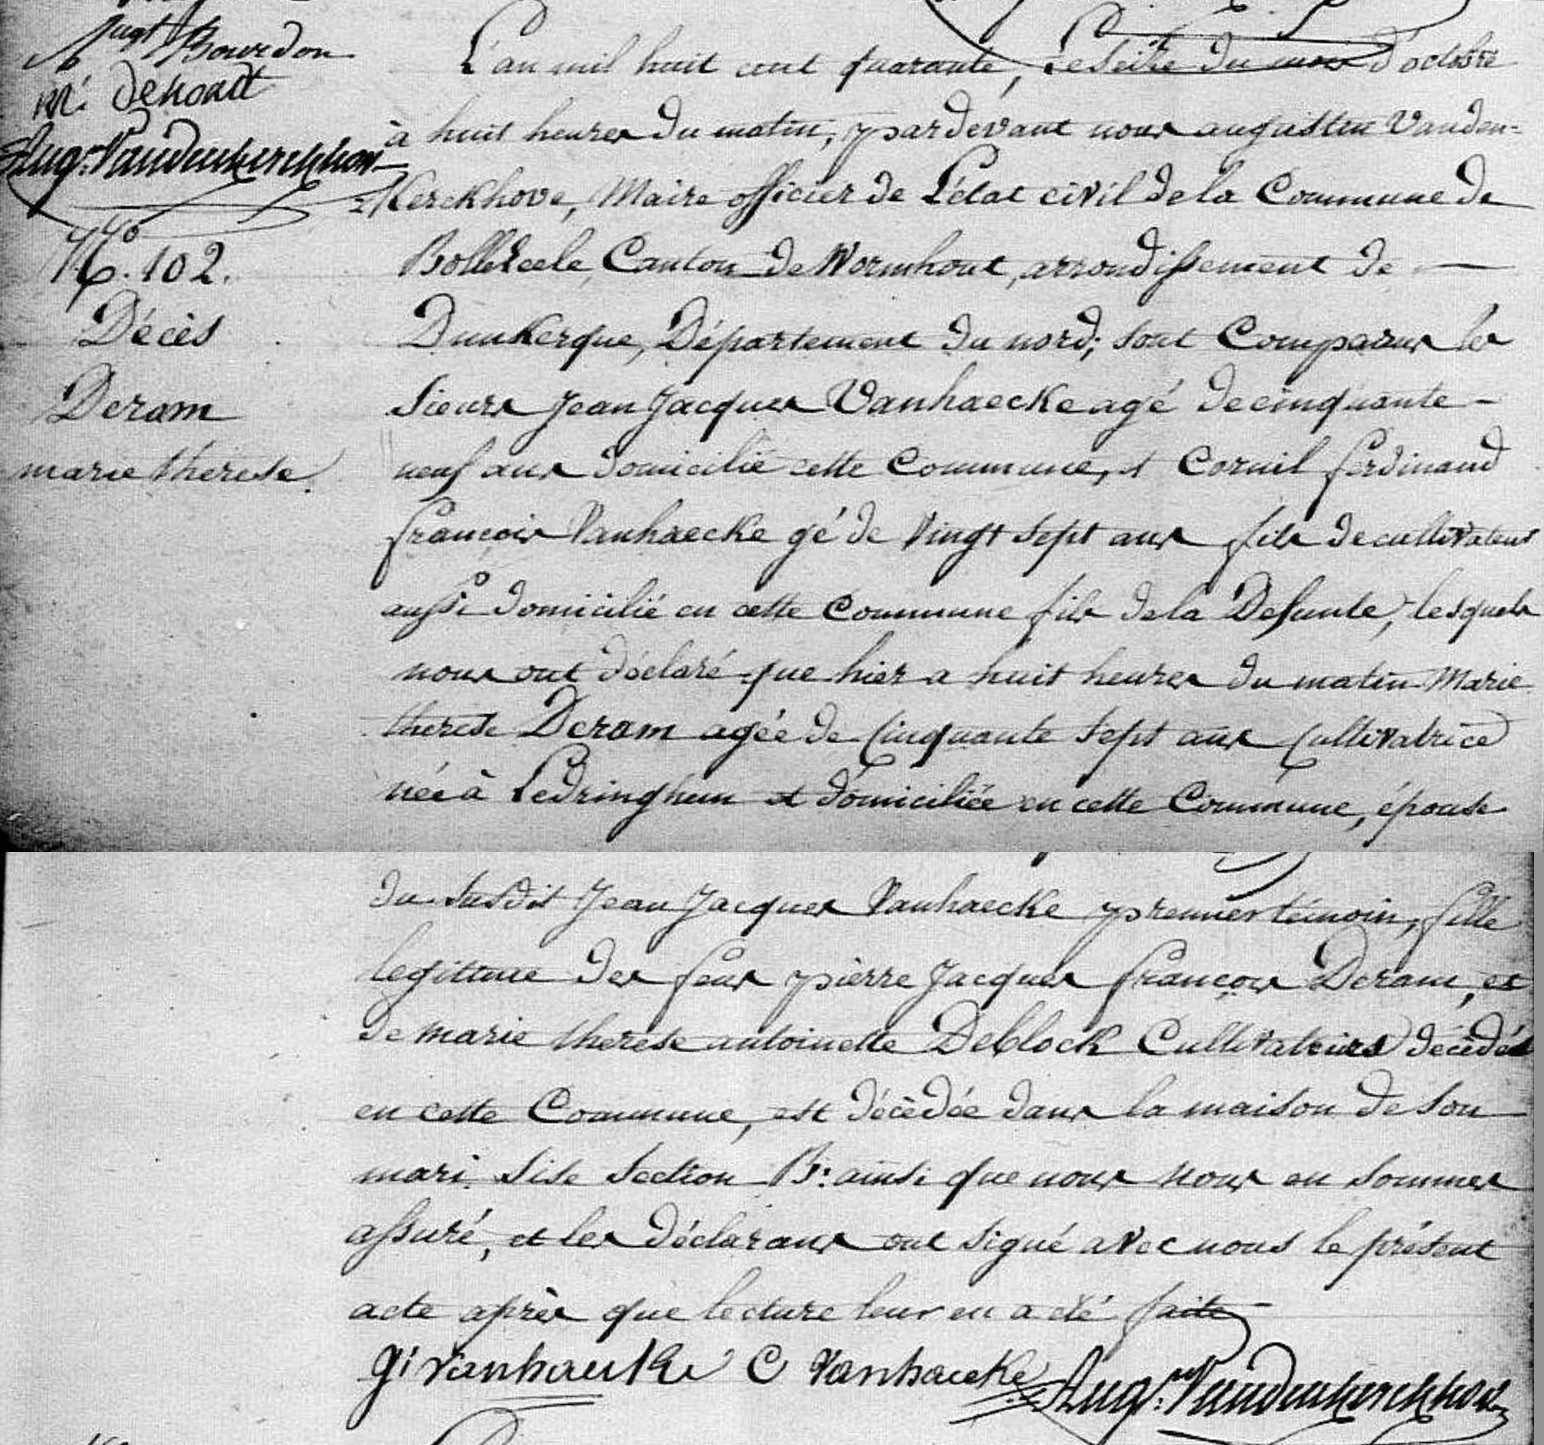 Augt Bourdon
M. Dehondt
Aug. Vandenkerckhove
No. 102.
Décès
Deram
marie therese.
L'an mil huit cent quarante, le seize du mois d'octobre
à huit heures du matin, pardevant nous augustin Vanden-
Kerckhove, Maire officier de L'état civil de la Commune de
Bollezeele, Canton de Wormhout, arrondissement de
Dunkerque, Département du nord; sont Comparus les
Sieurs Jean Jacques Vanhaecke agé de cinquante-
neuf ans domicilié cette Commune, et Cornil ferdinand
françois Vanhaecke gé de Vingt sept ans fils de cultivateur
aussi domicilié en cette Commune fils de la Defunte, lesquels
nous ont déclaré que hier a huit heures du matin Marie
therese Deram agée de Cinquante sept ans Cultivatrice
née à Ledringhem et domiciliée en cette Commune, épouse
du susdit Jean Jacques Vanhaecke premier témoin, fille
legittime des feus pierre Jacques françois Deram, et
de marie therese antoinette Deblock Cultivateurs décédés
en cette Commune, est décèdée dans la maison de son
mari sise section B: ainsi que nous nous en sommes
assuré, et les déclarans ont signé avec nous le présent
acte après que lecture leur en a été faite
gi vanhaecke C Vanhaecke Aug. Vandenkerckhove